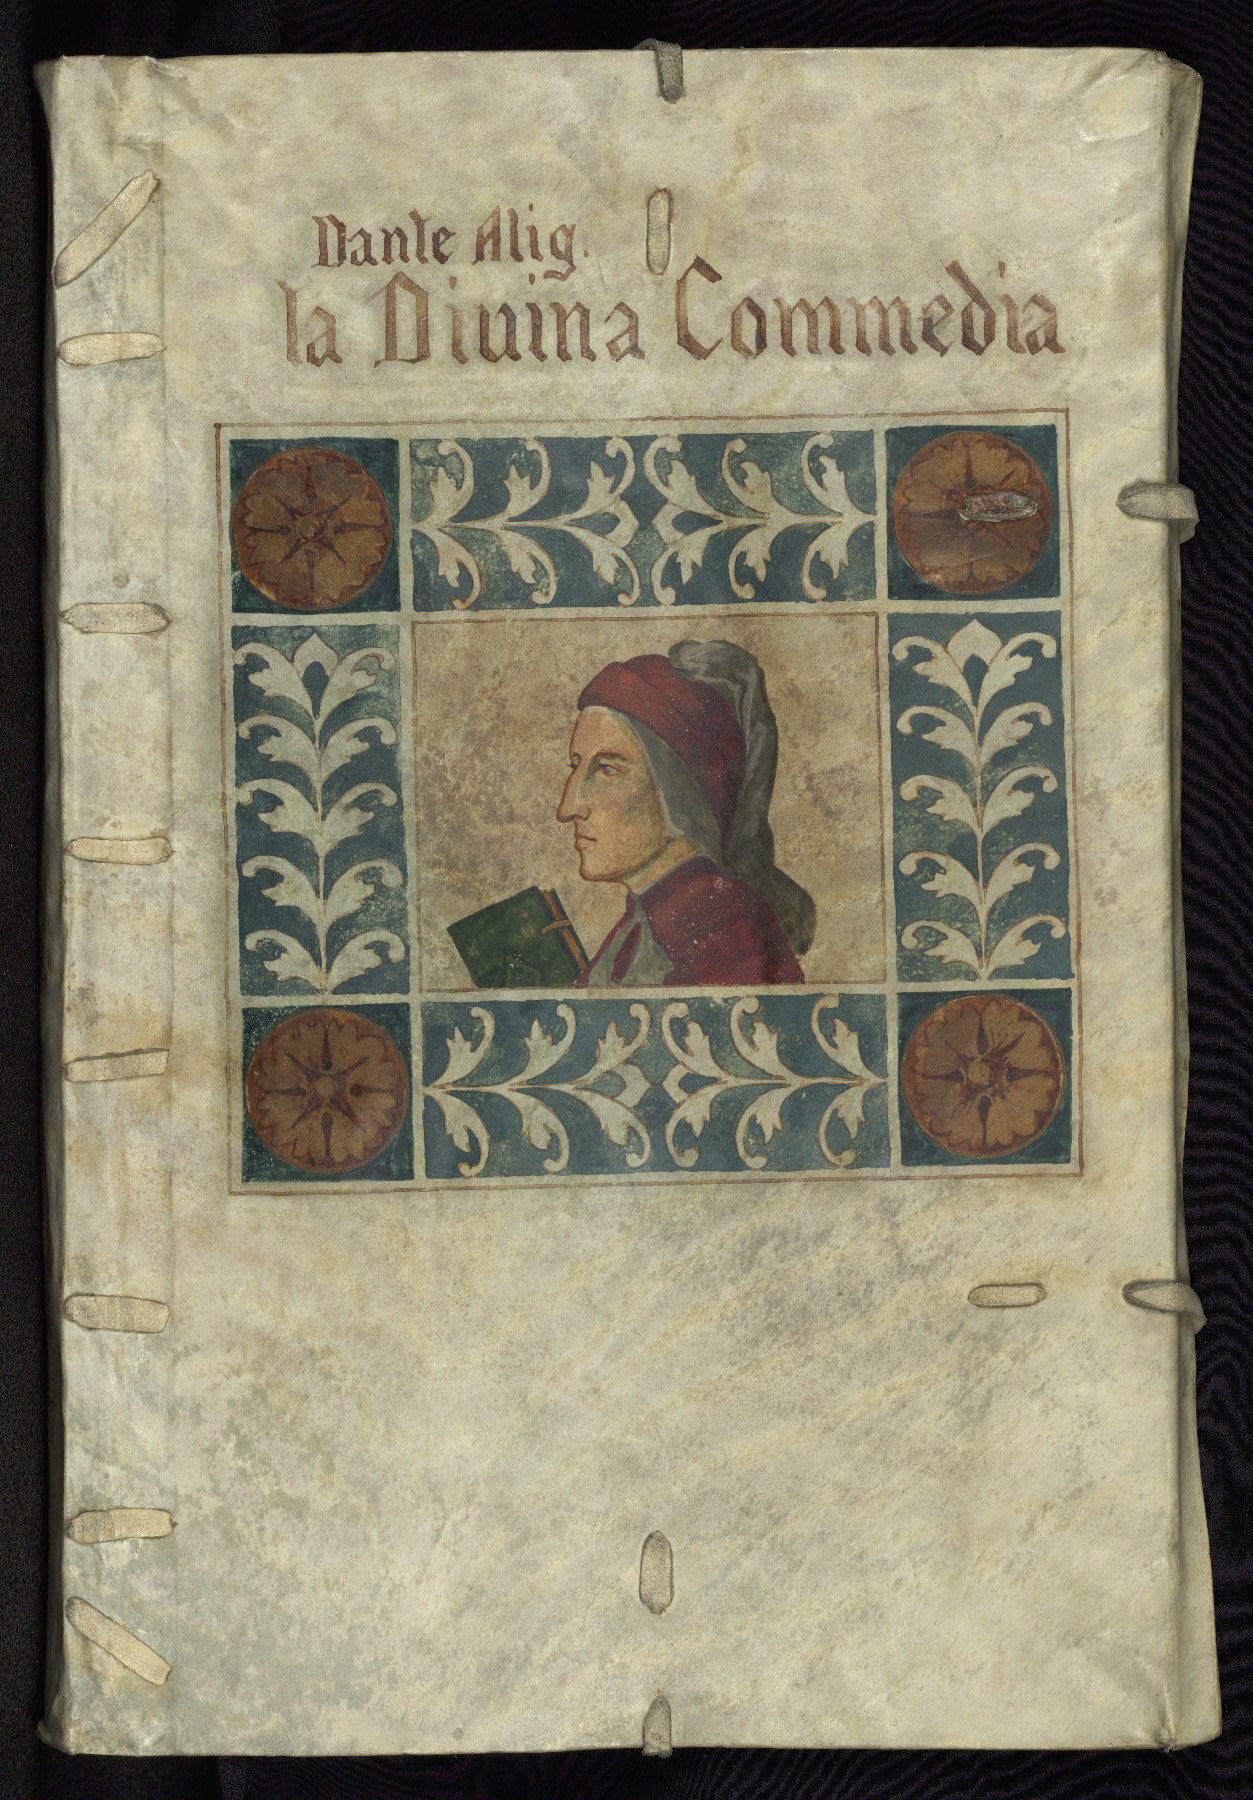 Dante Alig.
la Diuina Commedia